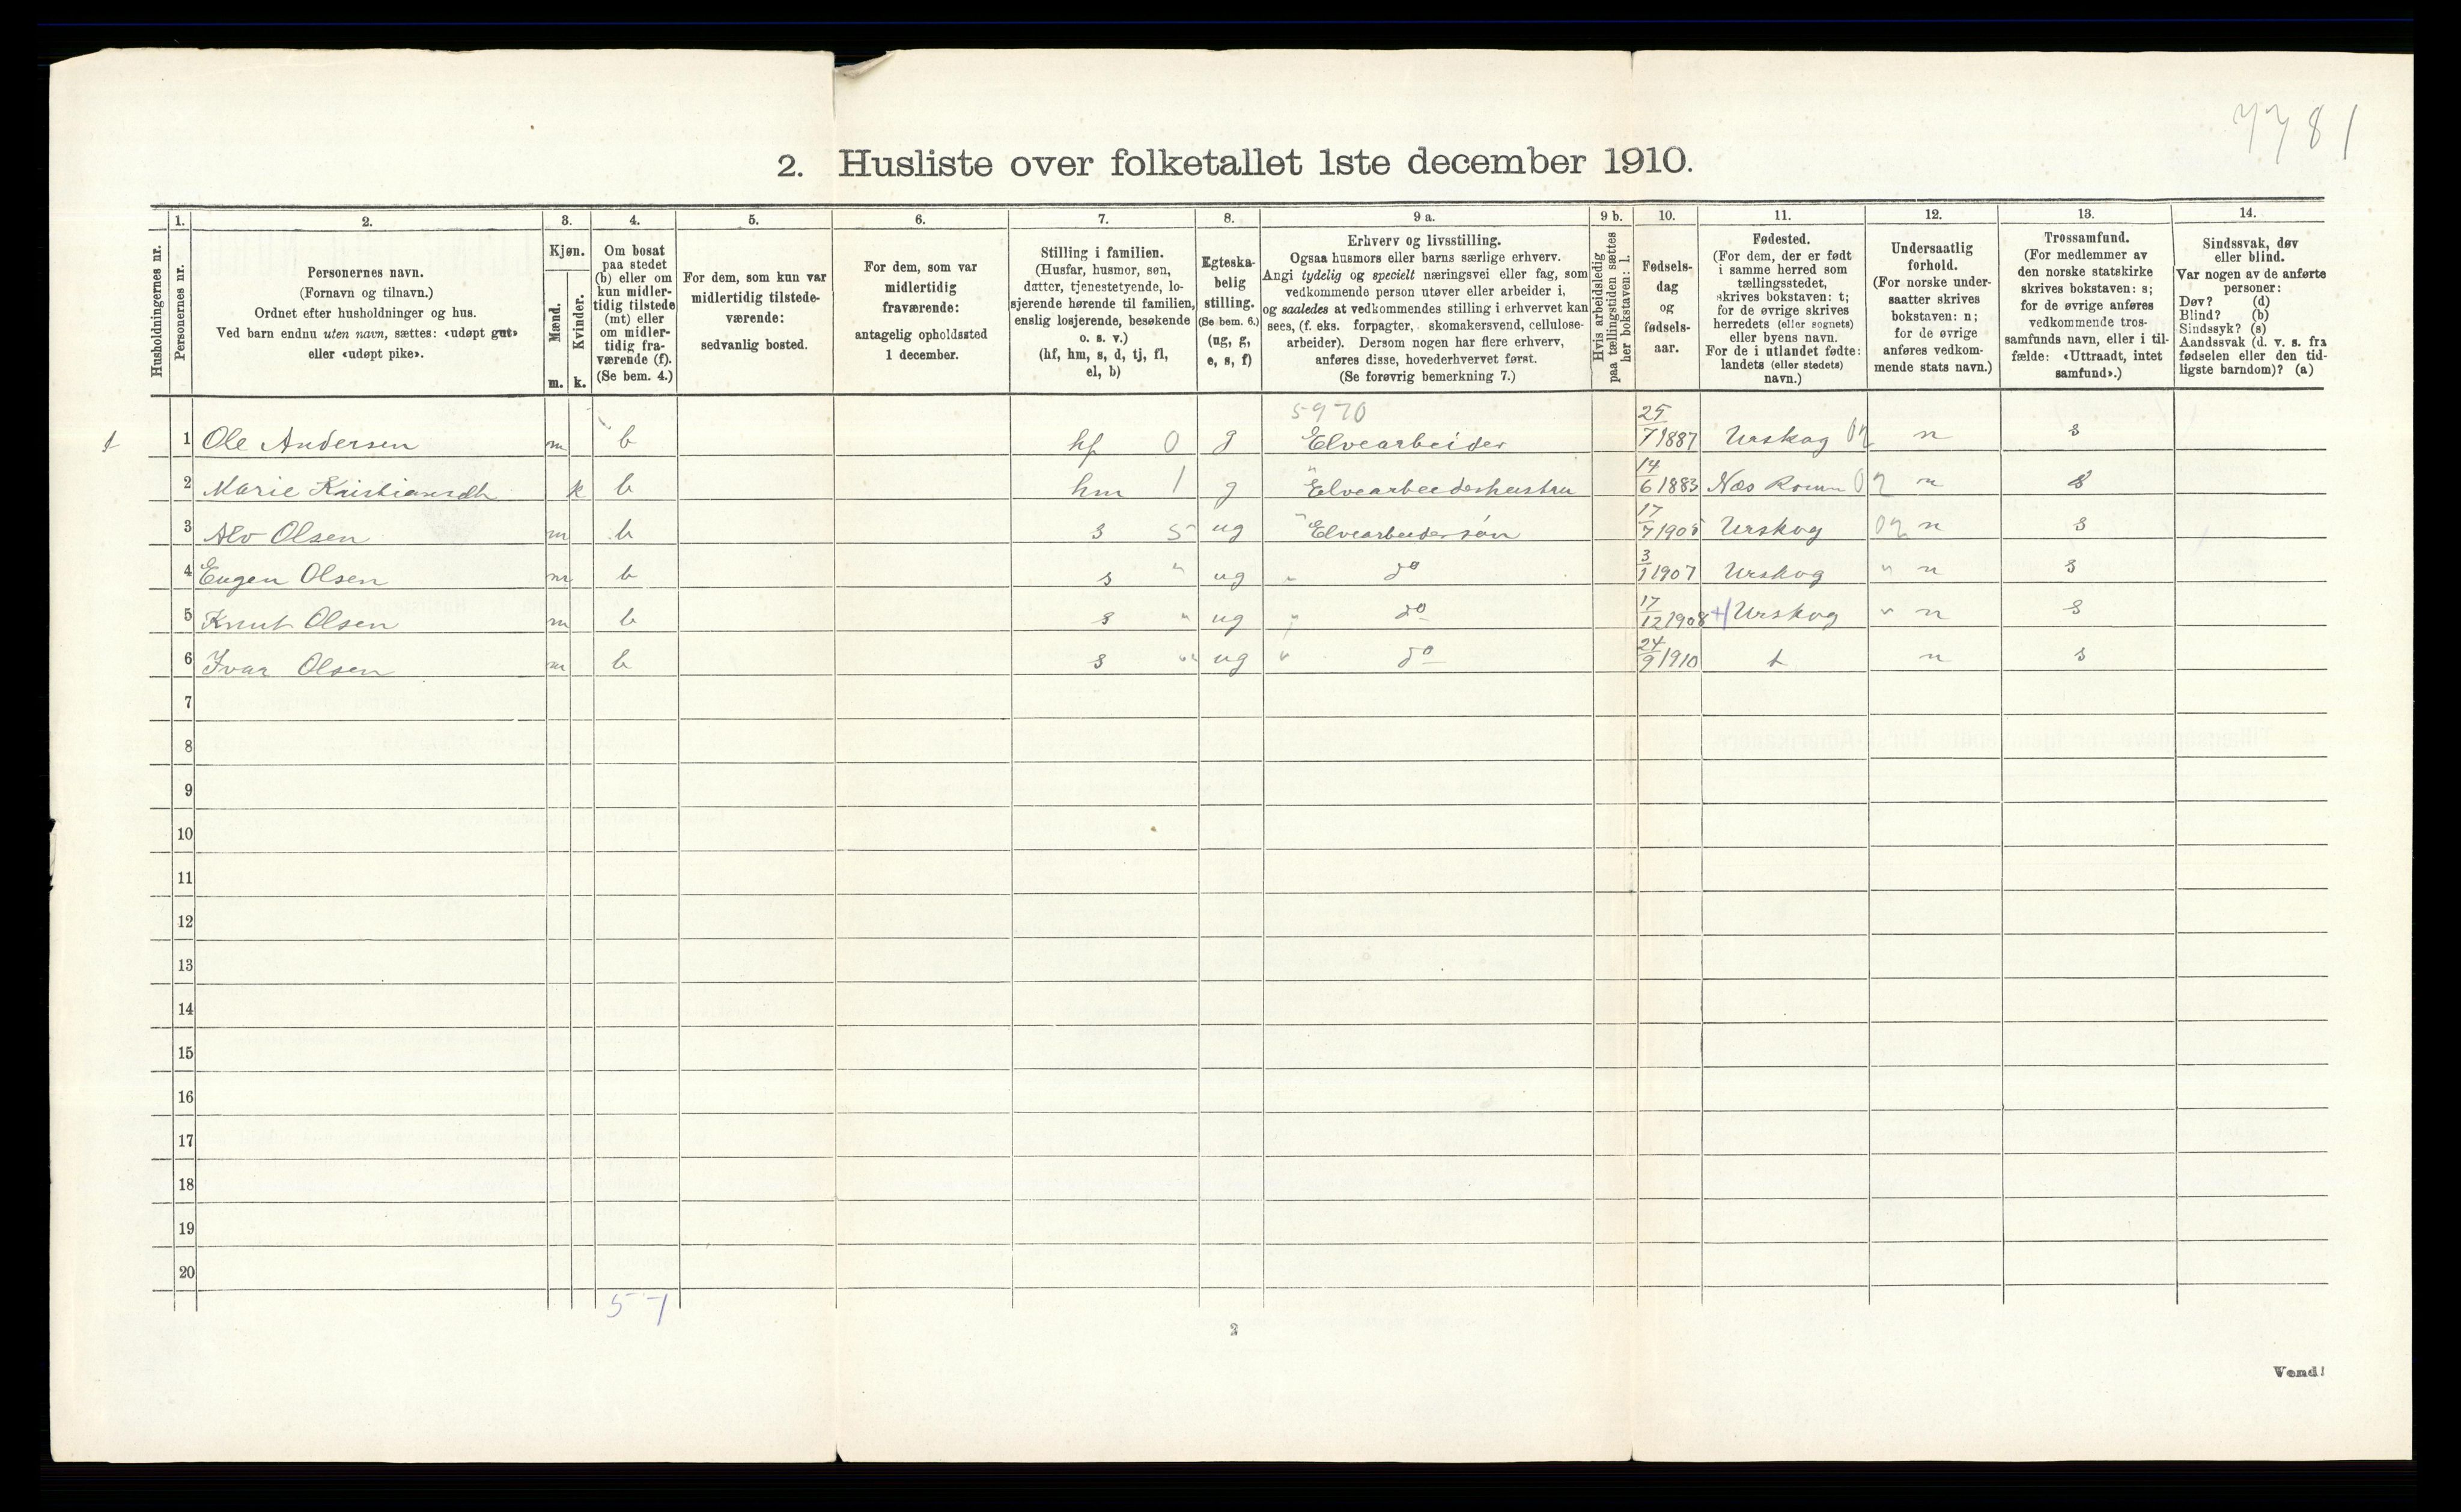 7781
2. Husliste over folketallet 1ste december 1910.
Husholdningernes nr.
1. Personernes nr.
2. Personernes navn.
(Fornavn og tilnavn.)
Ordnet efter husholdninger og hus.
Ved barn endnu uten navn, sættes: «udøpt gut»
eller «udøpt pike».
3. Kjøn.
Mænd. m.
Kvinder. k.
4. Om bosat
paa stedet
(b) eller om
kun midler-
tidig tilstede
(mt) eller
om midler-
tidig fra-
værende (f).
(Se bem. 4.)
5. For dem, som kun var
midlertidig tilstede-
værende:
sedvanlig bosted.
6. For dem, som var
midlertidig
fraværende:
antagelig opholdssted
1 december.
7. Stilling i familien.
(Husfar, husmor, søn,
datter, tjenestetyende, lo-
sjerende hørende til familien,
enslig losjerende, besøkende
o. s. v.)
(hf, hm, s, d, tj, fl,
el, b)
8. Egteska-
belig
stilling.
(Se bem. 6.)
(ug, g,
e, s, f)
9 a. Erhverv og livsstilling.
Ogsaa husmors eller barns særlige erhverv.
Angi tydelig og specielt næringsvei eller fag, som
vedkommende person utøver eller arbeider i,
og saaledes at vedkommendes stilling i erhvervet kan
sees, (f. eks. forpagter, skomakersvend, cellulose-
arbeider). Dersom nogen har flere erhverv,
anføres disse, hovederhvervet først.
(Se forøvrig bemerkning 7.)
9 b. Hvis arbeidsledig
paa tællingstiden sættes
her bokstaven: l.
10. Fødsels-
dag
og
fødsels-
aar.
11. Fødested.
(For dem, der er født
i samme herred som
tællingsstedet,
skrives bokstaven: t;
for de øvrige skrives
herredets (eller sognets)
eller byens navn.
For de i utlandet fødte:
landets (eller stedets)
navn.)
12. Undersaatlig
forhold.
(For norske under-
saatter skrives
bokstaven: n;
for de øvrige
anføres vedkom-
mende stats navn.)
13. Trossamfund.
(For medlemmer av
den norske statskirke
skrives bokstaven: s;
for de øvrige anføres
vedkommende tros-
samfunds navn, eller i til-
fælde: «Uttraadt, intet
samfund».)
14. Sindssvak, døv
eller blind.
Var nogen av de anførte
personer:
Døv? (d)
Blind? (b)
Sindssyk? (s)
Aandssvak (d. v. s. fra
fødselen eller den tid-
ligste barndom)? (a)
5970
1 Ole Andersen m b hf 0 g Elvearbeider 25/7 1887 Urskog n s
2 Marie Kristiansdtr k b hm 1 g " Elvearbeiderhustru 14/6 1883 Næs Rom n s
3 Alv Olsen m b s 5 ug " Elvearbeidersøn 17/7 1905 Urskog n s
4 Eugen Olsen m b s " ug " do 3/1 1907 Urskog " n s
5 Knut Olsen m b s " ug " do 17/12 1908 Urskog " n s
6 Ivar Olsen m b s " ug " do 24/9 1910 t n s
7
8
9
10
11
12
13
14
15
16
17
18
19
20
5 1
2
Vend!